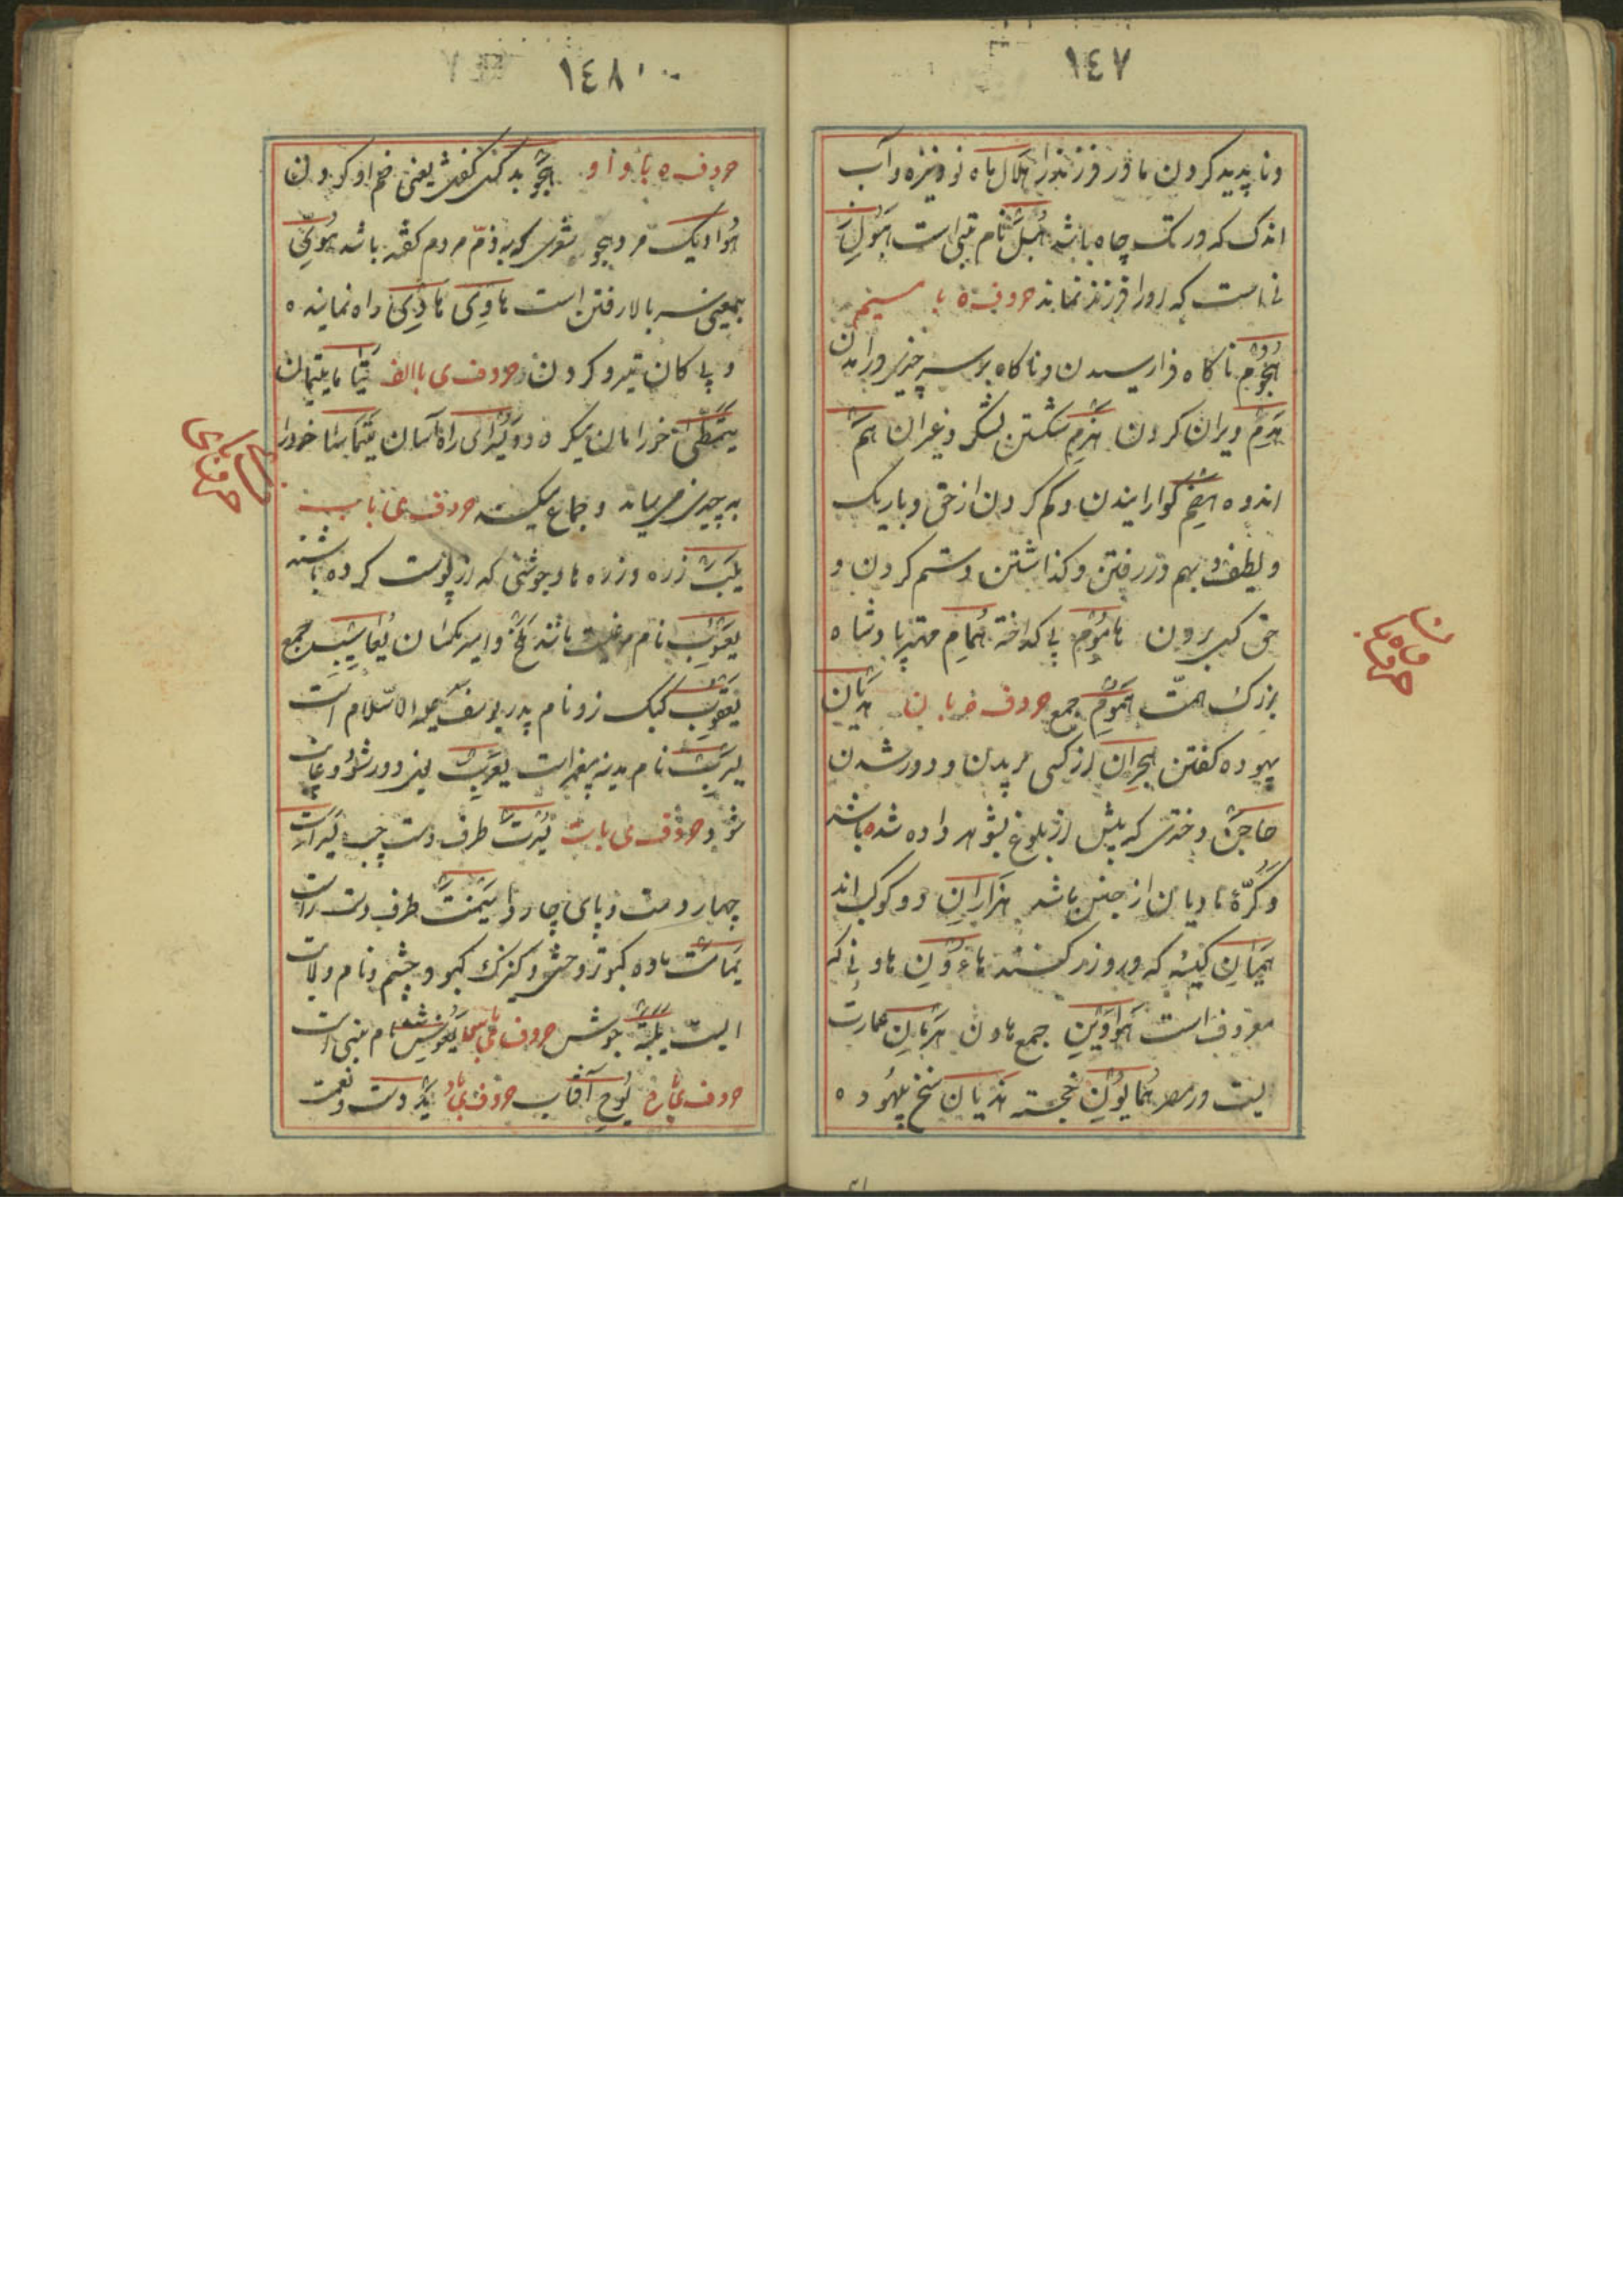 ١٤٧
وناپدید کردن مادر فرزند را هلال ماه نو و نیزه و آب
اندک که در تک چاه باشد هبل نام بتی است هبول
زنیست که او را فرزند نماند حروف ه با میم
هجوم ناکاه فرا رسیدن و ناکاه بر سر چیزی درآمدن
هدم ویران کردن هزم شکستن لشکر و غیران هم
اندوه هضم کوارانیدن و کم کردن از حق و باریک
و لطیف و بهم در رفتن و کذاشتن و ستم کردن و
حق کسی بردن هاموم پی کداخته همام مهتر پادشاه
بزرک همت هموم جمع حروف با ن هذیان
بیهوده کفتن هجران از کسی بریدن و دور شدن
هاجن دختری که پیش از بلوغ بشوهر داده شده باشد
و کرّهٔ مادیان از جنس باشد هزاران دو کوکب اند
همیان کیسه که درو زر کنند هاوون هاونی که
معروف است هواوین جمع هاون هرمان عمارت
یست در مصر همایون خجسته هذیان سخن بیهوده
حروف ه با ن
١٤٨
حروف ه با واو هجو بد کسی کفتن یعنی ذم او کردن
هواویک مرد هجو شعری که به ذمّ مردم کفته باشد هویّ
بمعنی سر بالا رفتن است هاوی هادی راه نماینده
و پیکان تیر و کردن حروف ی با الف یتامی یتیمان
یتمطی خرامان میکردد و یرای راه آسان یتماسا خود را
به چیزی می‌رساند و جماع میکند حروف ی با ب
یلب زره و زره‌ها و جوشنی که از پوست کرده باشند
یعسوب نام باشد ملخ و امیر مکسان یعاسیب جمع
یعقوب کبک نر و نام پدر یوسف علیه السّلام است
یثرب نام مدینه پیغمبر است یعزب یعنی دور شود و غایب
شود حروف ی با ت یسرت طرف دست چپ
چهار دست و پای چاروا میمنت طرف دست راست
یمامت ماده کبوتر وحشی و کنیزک کبود چشم و نام ولایت
الیت یلبة جوشن حروف ی با یغوث نام بتی است
حروف ی با ح یوح آفتاب حروف ی با د ید دست و نعمت
حروف ی با